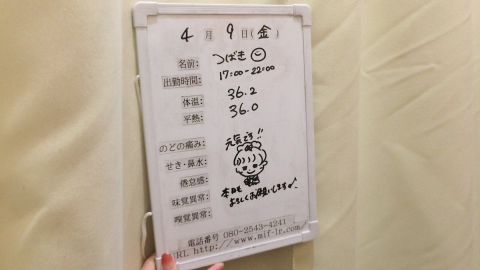 4月9日(金)
名前: つばき
出勤時間: 17:00-22:00
体温: 36.2
平熱: 36.0
のどの痛み:
元気です!!
せき・鼻水:
倦怠感:
味覚異常:
本日も
よろしくお願いします♪
嗅覚異常:
電話番号 080-2543-4241
URL http://www.mif-lr.com/